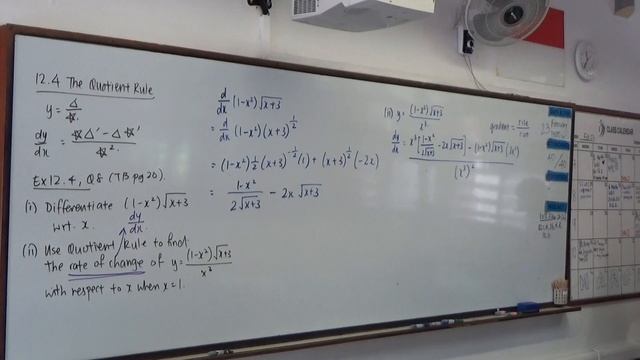 12.4 The Quotient Rule
y = △/☆
dy/dx = (☆△' − △☆')/☆².
Ex 12.4, Q8 (TB pg 26).
(i) Differentiate (1−x²)√(x+3)
wrt. x. dy/dx
(ii) Use Quotient Rule to find
the rate of change of y = (1−x²)√(x+3)/x³
with respect to x when x = 1.
d/dx (1−x²)√(x+3)
= d/dx (1−x²)(x+3)^(1/2)
= (1−x²)½(x+3)^(−1/2)(1) + (x+3)^(1/2)(−2x)
= (1−x²)/(2√(x+3)) − 2x√(x+3)
(ii) y = (1−x²)√(x+3)/x³
gradient = rise/run
dy/dx = (x³[(1−x²)/(2√(x+3)) − 2x√(x+3)] − (1−x²)√(x+3)(3x²))/(x³)²
CLASS CALENDAR